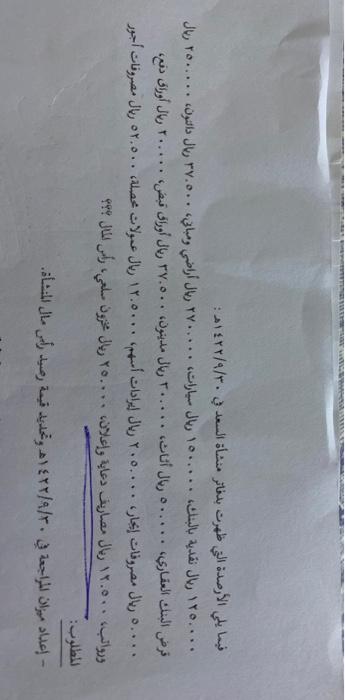 فيما يلي الأرصدة التي ظهرت بدفاتر منشأة السعد في ١٤٢٢/٩/٣٠هـ:
١٢٥.٠٠٠ ريال نقدية بالبنك، ١٥٠.٠٠٠ ريال سيارات، ٢٧٠.٠٠٠ ريال أراضي ومباني، ٣٧.٥٠٠ ريال دائنون، ٢٥٠.٠٠٠ ريال
قرض البنك العقاري، ٥٠.٠٠٠ ريال أثاث، ٣٠.٠٠٠ ريال مدينون، ٣٧.٥٠٠ ريال أوراق قبض، ٢٠.٠٠٠ ريال أوراق دفع،
٥.٠٠٠ ريال مصروفات إيجار، ٢٠٥.٠٠٠ ريال إيرادات أسهم، ١٢.٥٠٠ ريال عمولات محصلة، ٥٢.٥٠٠ ريال مصروفات أجور
ورواتب، ١٢.٥٠٠ ريال مصاريف دعاية وإعلان، ٢٥.٠٠٠ ريال مخزون سلعي، رأس المال ؟؟؟
المطلوب:
- إعداد ميزان المراجعة في ١٤٢٢/٩/٣٠هـ وتحديد قيمة رصيد رأس مال المنشأة.